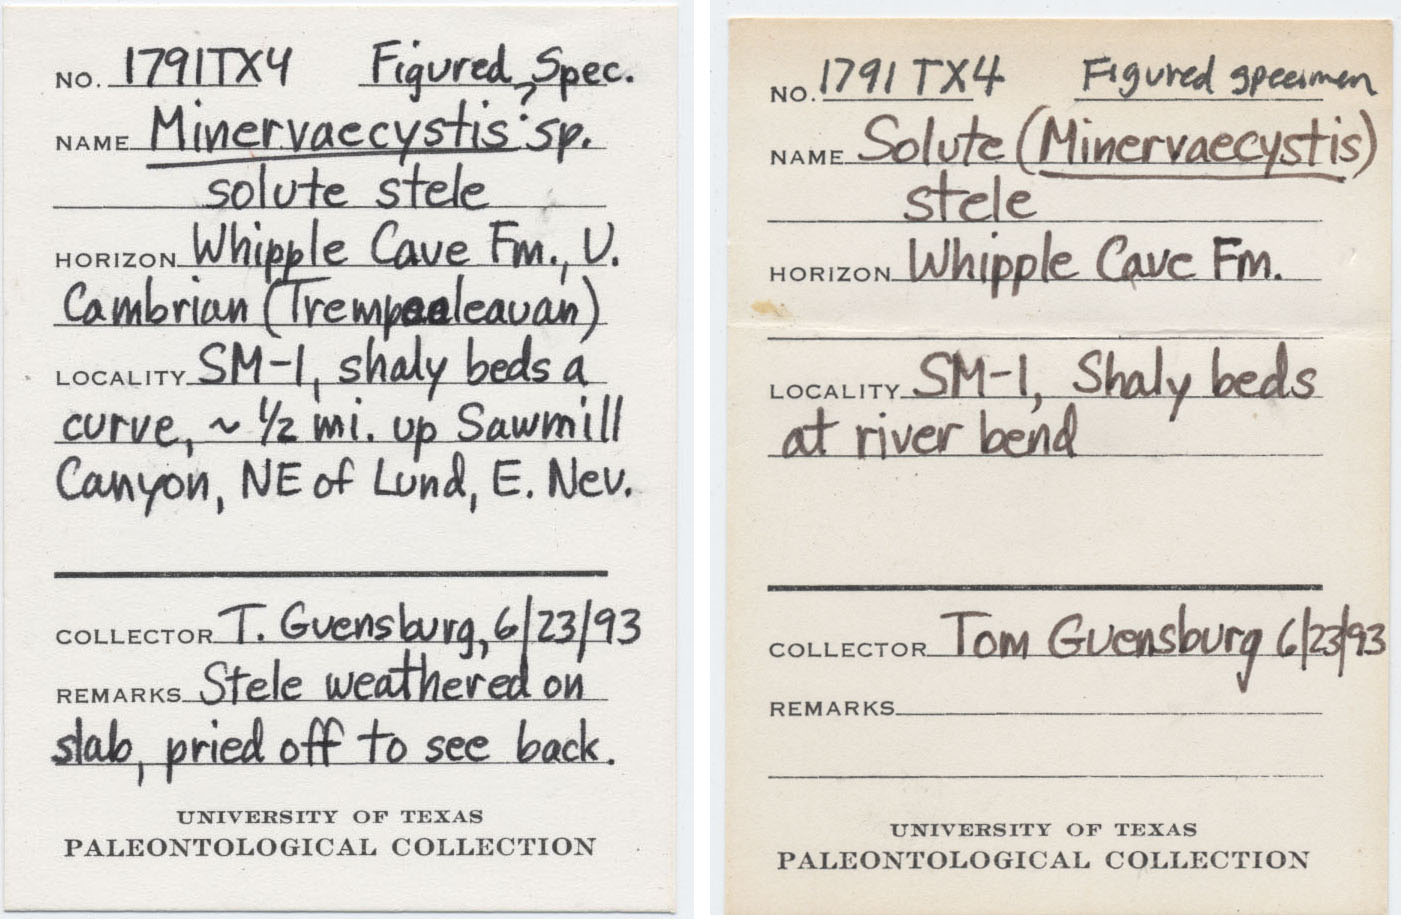 NO. 1791TX4 Figured Spec.
NAME Minervaecystis? sp.
solute stele
HORIZON Whipple Cave Fm., U.
Cambrian (Trempealeauan)
LOCALITY SM-1, shaly beds a
curve, ~ 1/2 mi. up Sawmill
Canyon, NE of Lund, E. Nev.
COLLECTOR T. Guensburg, 6/23/93
REMARKS Stele weathered on
slab, pried off to see back.
UNIVERSITY OF TEXAS
PALEONTOLOGICAL COLLECTION
NO. 1791 TX4 Figured specimen
NAME Solute (Minervaecystis)
stele
HORIZON Whipple Cave Fm.
LOCALITY SM-1, Shaly beds
at river bend
COLLECTOR Tom Guensburg 6/23/93
REMARKS
UNIVERSITY OF TEXAS
PALEONTOLOGICAL COLLECTION